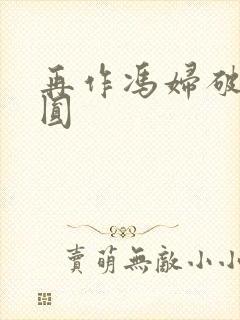 再作馮婦破
圓
賣萌無敵小小